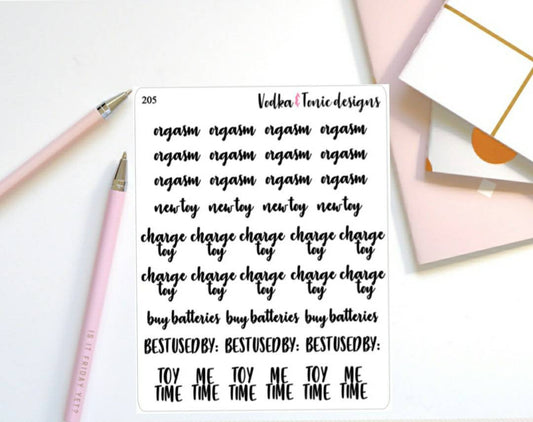 205 Vodka & Tonic designs
orgasm orgasm orgasm orgasm
orgasm orgasm orgasm orgasm
orgasm orgasm orgasm orgasm
new toy new toy new toy new toy
charge charge charge charge charge
toy toy toy toy toy
charge charge charge charge charge
toy toy toy toy toy
buy batteries buy batteries buy batteries
BEST USED BY: BEST USED BY: BEST USED BY:
TOY ME TOY ME TOY ME
TIME TIME TIME TIME TIME TIME
IS IT FRIDAY YET?